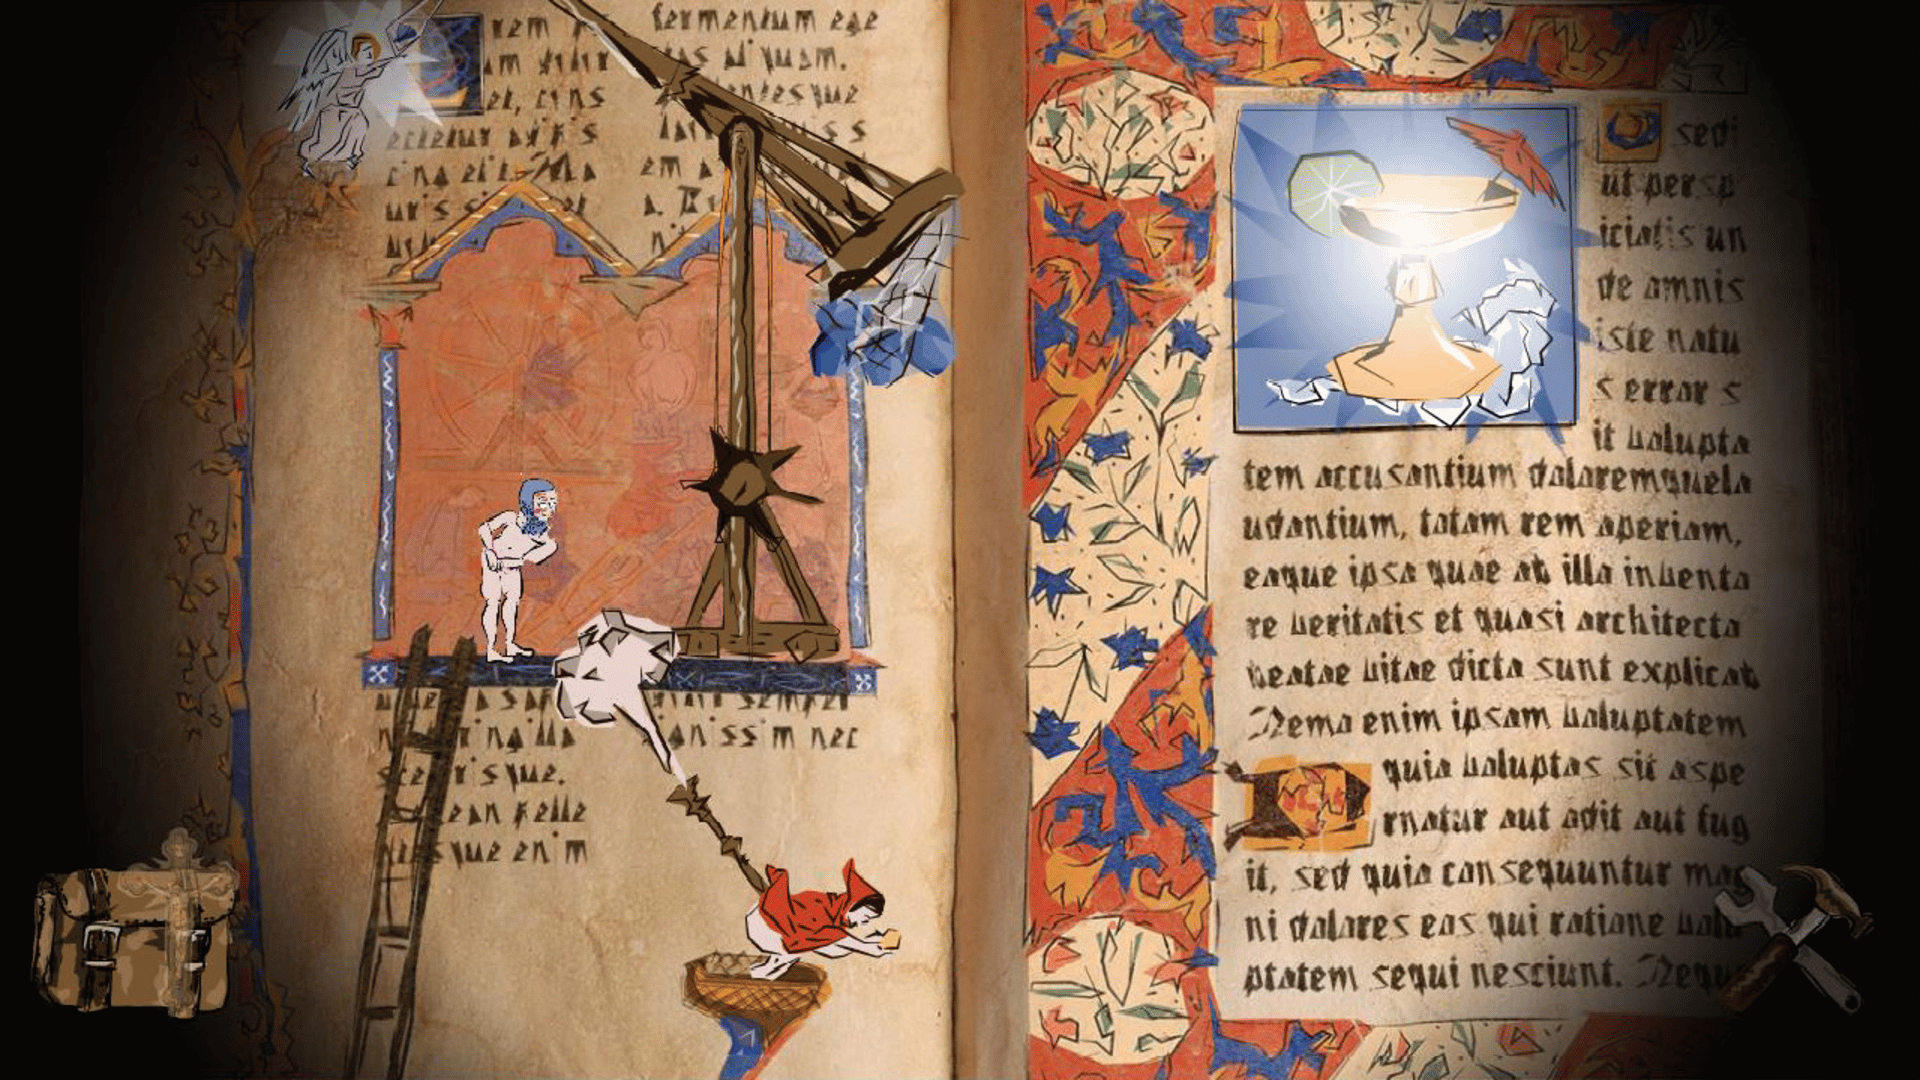 rem
et, cons
ectetur adipis
cing elit. Ma
uris
fermentum ege
ras aliquam.
entesque
em a
semper
nissim nec
scelerisque.
ean
esque enim
sed
ut persp
iciatis un
de omnis
iste natu
s error s
it volupta
tem accusantium doloremquela
udantium, totam rem aperiam,
eaque ipsa quae ab illo invento
re veritatis et quasi architecto
beatae vitae dicta sunt explicab
Nemo enim ipsam voluptatem
quia voluptas sit aspe
rnatur aut odit aut fug
it, sed quia consequuntur mag
ni dolores eos qui ratione volu
ptatem sequi nesciunt. Nequ